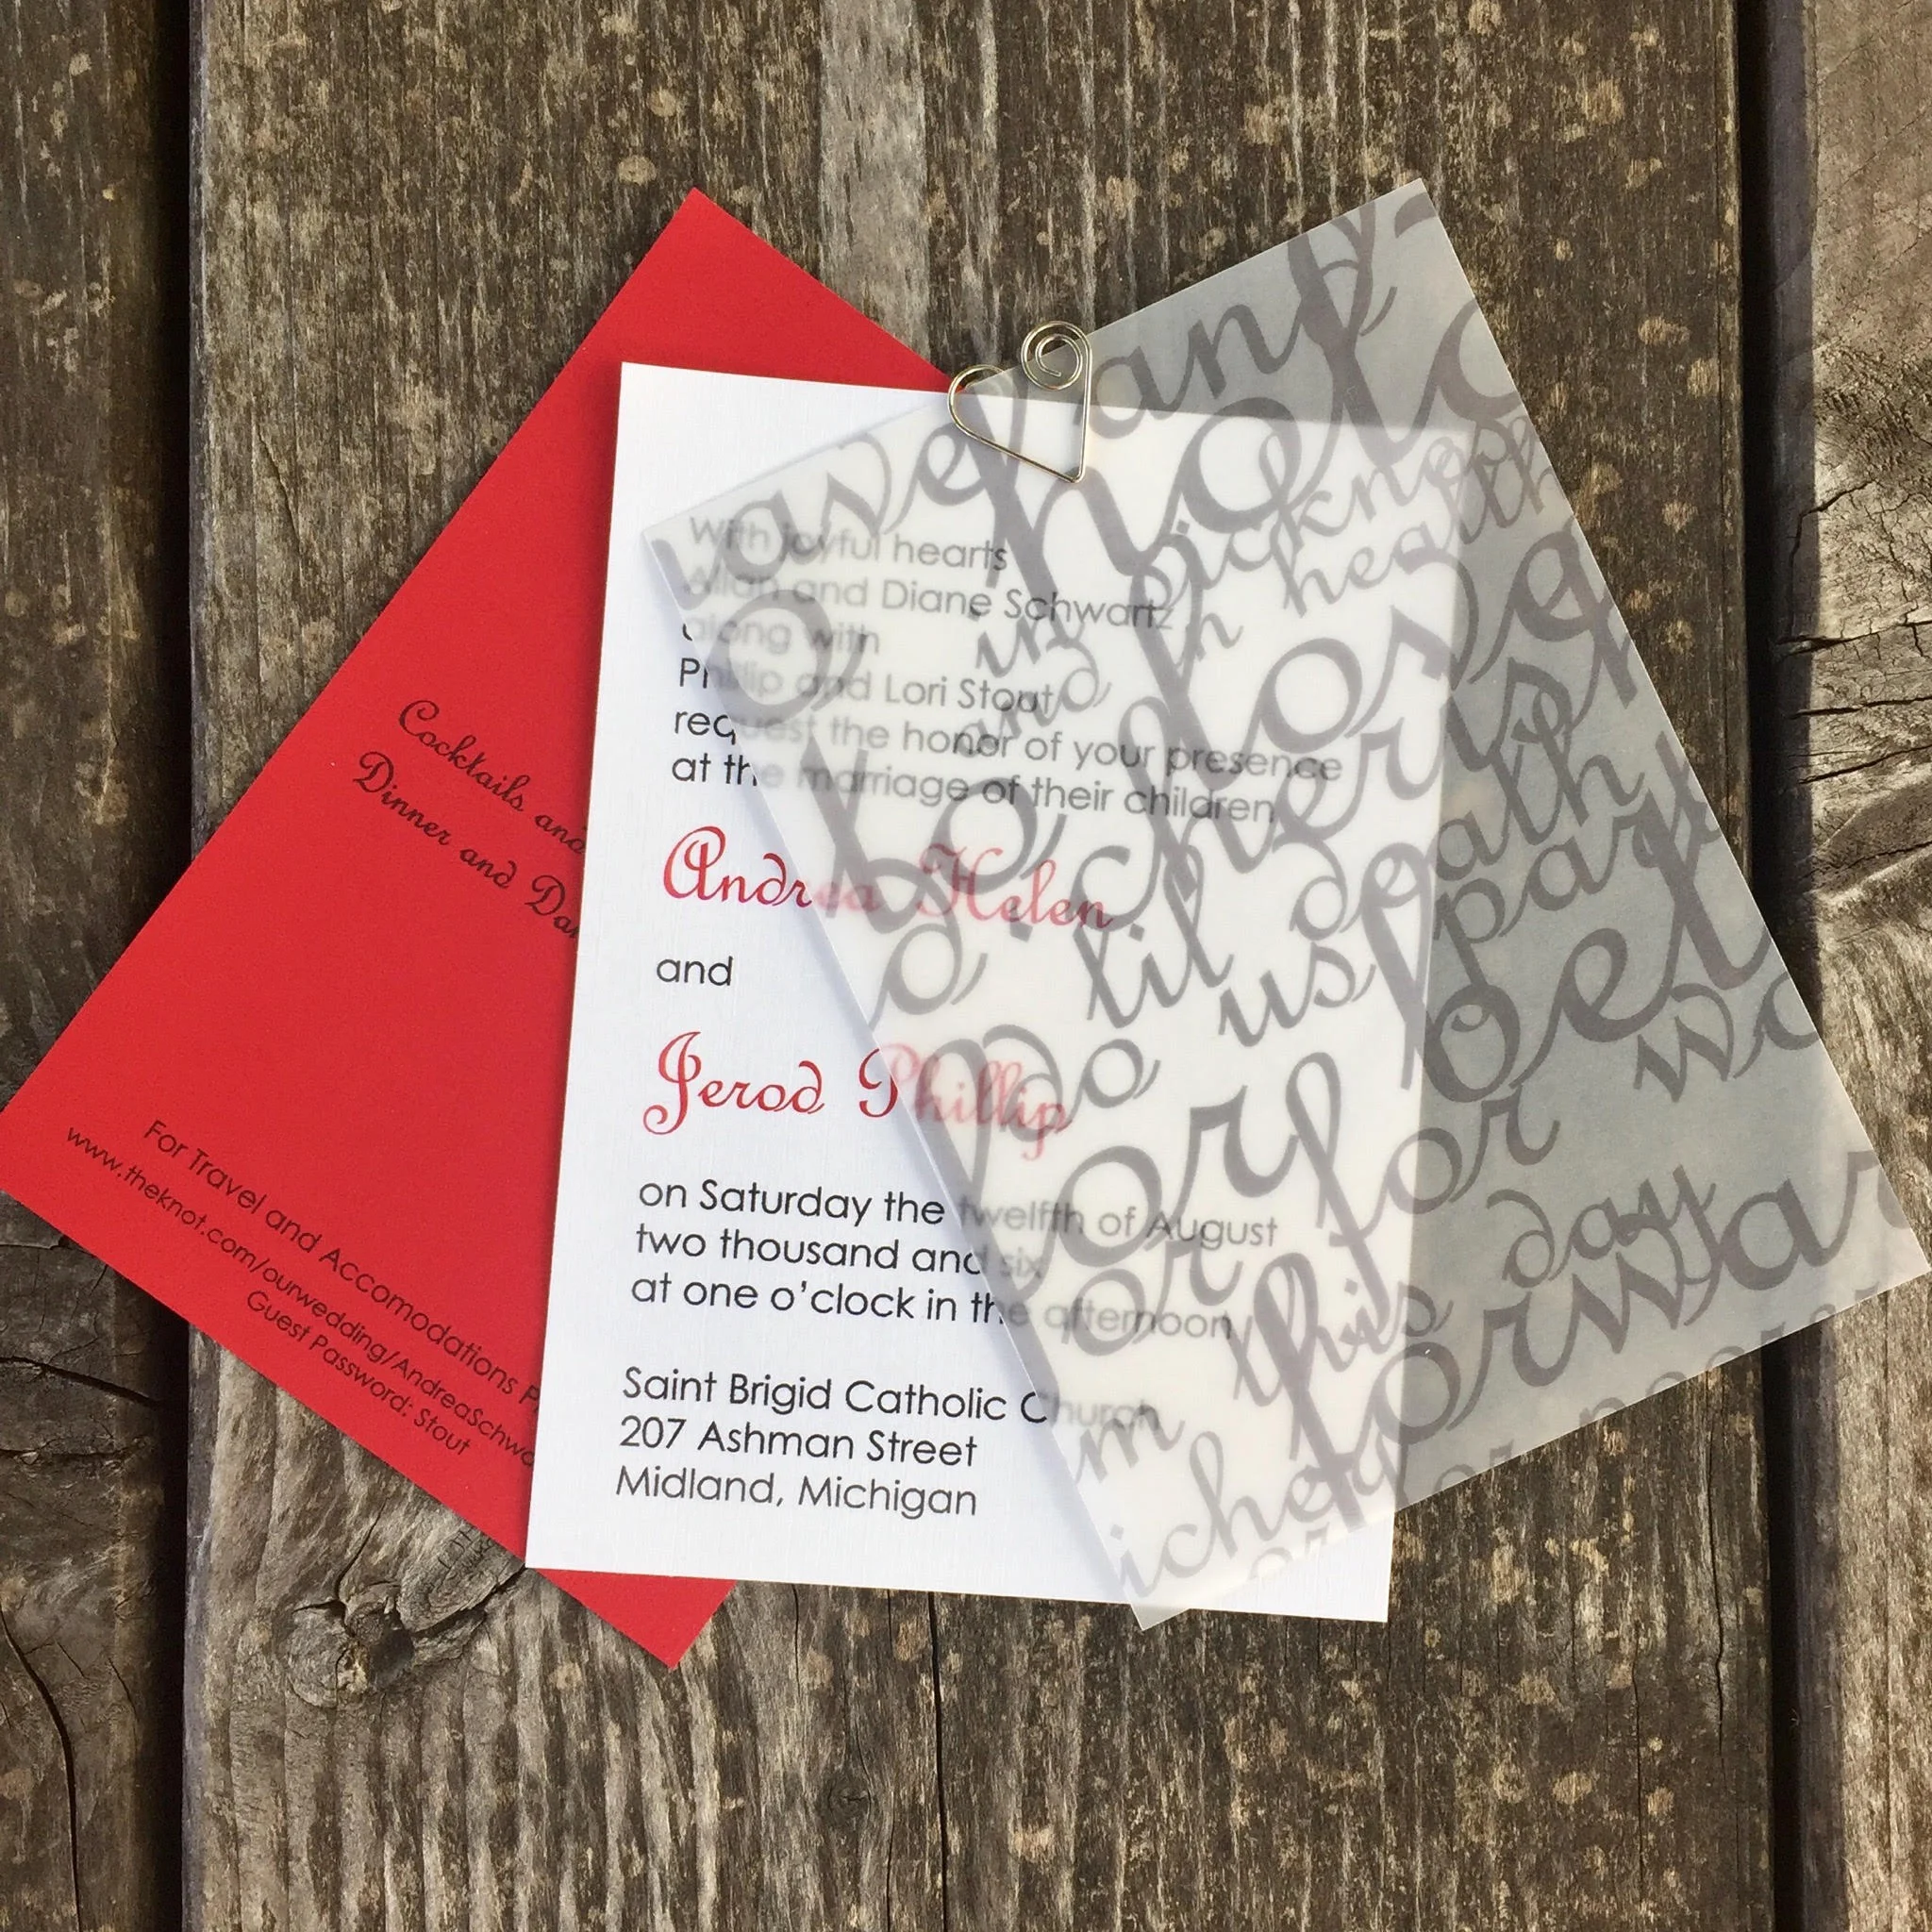 Cocktails and
Dinner and
For Travel and Accomodations
www.theknot.com/ourwedding/AndreaSchwa
Guest Password: Stout
With joyful hearts
Allan and Diane Schwartz
along with
Phillip and Lori Stout
request the honor of your presence
at the marriage of their children
Andrea Helen
and
Jerod Phillip
on Saturday the twelfth of August
two thousand and six
at one o'clock in the afternoon
Saint Brigid Catholic Church
207 Ashman Street
Midland, Michigan
have and
to hold
in sickness
and in health
to love
cherish
til death
do us part
for
for
or
this day
forwar